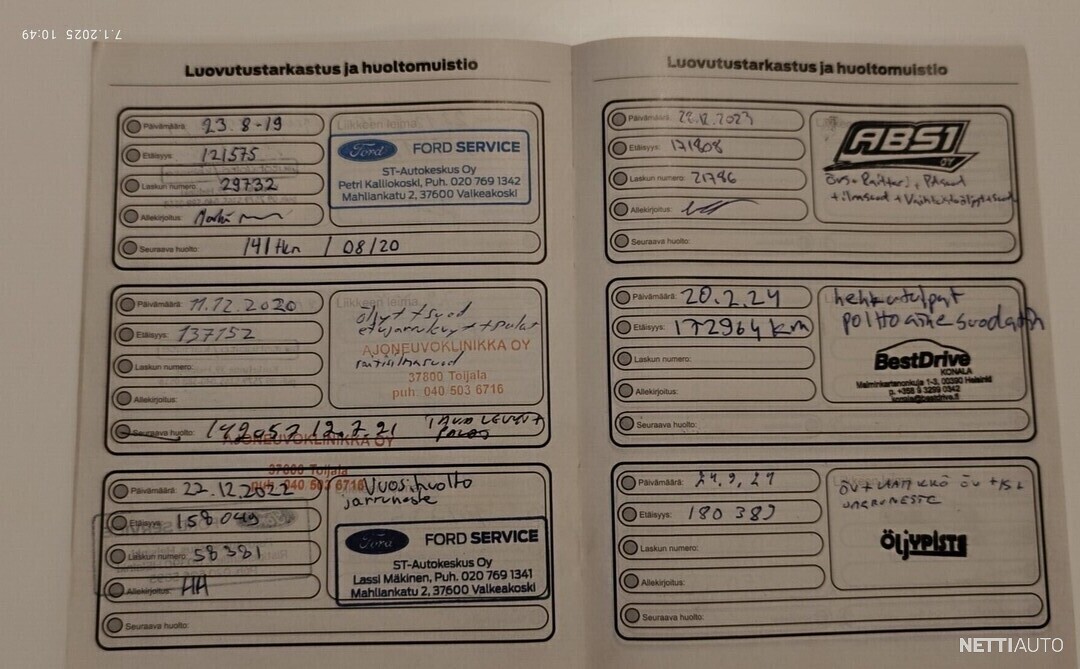 7.1.2025 10:49
Luovutustarkastus ja huoltomuistio
Päivämäärä: 23.8-19
Etäisyys: 121575
Laskun numero: 29732
Allekirjoitus:
Seuraava huolto: 141 tkm / 08/20
Liikkeen leima:
Ford FORD SERVICE
ST-Autokeskus Oy
Petri Kalliokoski, Puh. 020 769 1342
Mahliankatu 2, 37600 Valkeakoski
Päivämäärä: 11.12.2020
Etäisyys: 137152
Laskun numero:
Allekirjoitus:
Seuraava huolto: 12.7.21
Liikkeen leima:
öljyt + suod
etujarrulevyt + palat
AJONEUVOKLINIKKA OY
raitisilmasuod
37800 Toijala
puh: 040 503 6716
TAKA LEVYT
PALAT
AJONEUVOKLINIKKA OY
37800 Toijala
puh: 040 503 6716
Päivämäärä: 22.12.2022
Etäisyys: 158049
Laskun numero: 58381
Allekirjoitus: AH
Seuraava huolto:
Vuosihuolto
jarruneste
Ford FORD SERVICE
ST-Autokeskus Oy
Lassi Mäkinen, Puh. 020 769 1341
Mahliankatu 2, 37600 Valkeakoski
Luovutustarkastus ja huoltomuistio
Päivämäärä: 22.12.2023
Etäisyys: 171808
Laskun numero: 21786
Allekirjoitus:
Seuraava huolto:
ABS1 OY
Päivämäärä: 20.2.24
Etäisyys: 172964 km
Laskun numero:
Allekirjoitus:
Seuraava huolto:
hehkutulpat
polttoainesuodatin
BestDrive
KONALA
Malminkartanonkuja 1-3, 00390 Helsinki
p. +358 9 3299 0342
Päivämäärä:
Etäisyys: 180389
Laskun numero:
Allekirjoitus:
Seuraava huolto:
JARRUNESTE
ÖLJYPISTE
NETTIAUTO